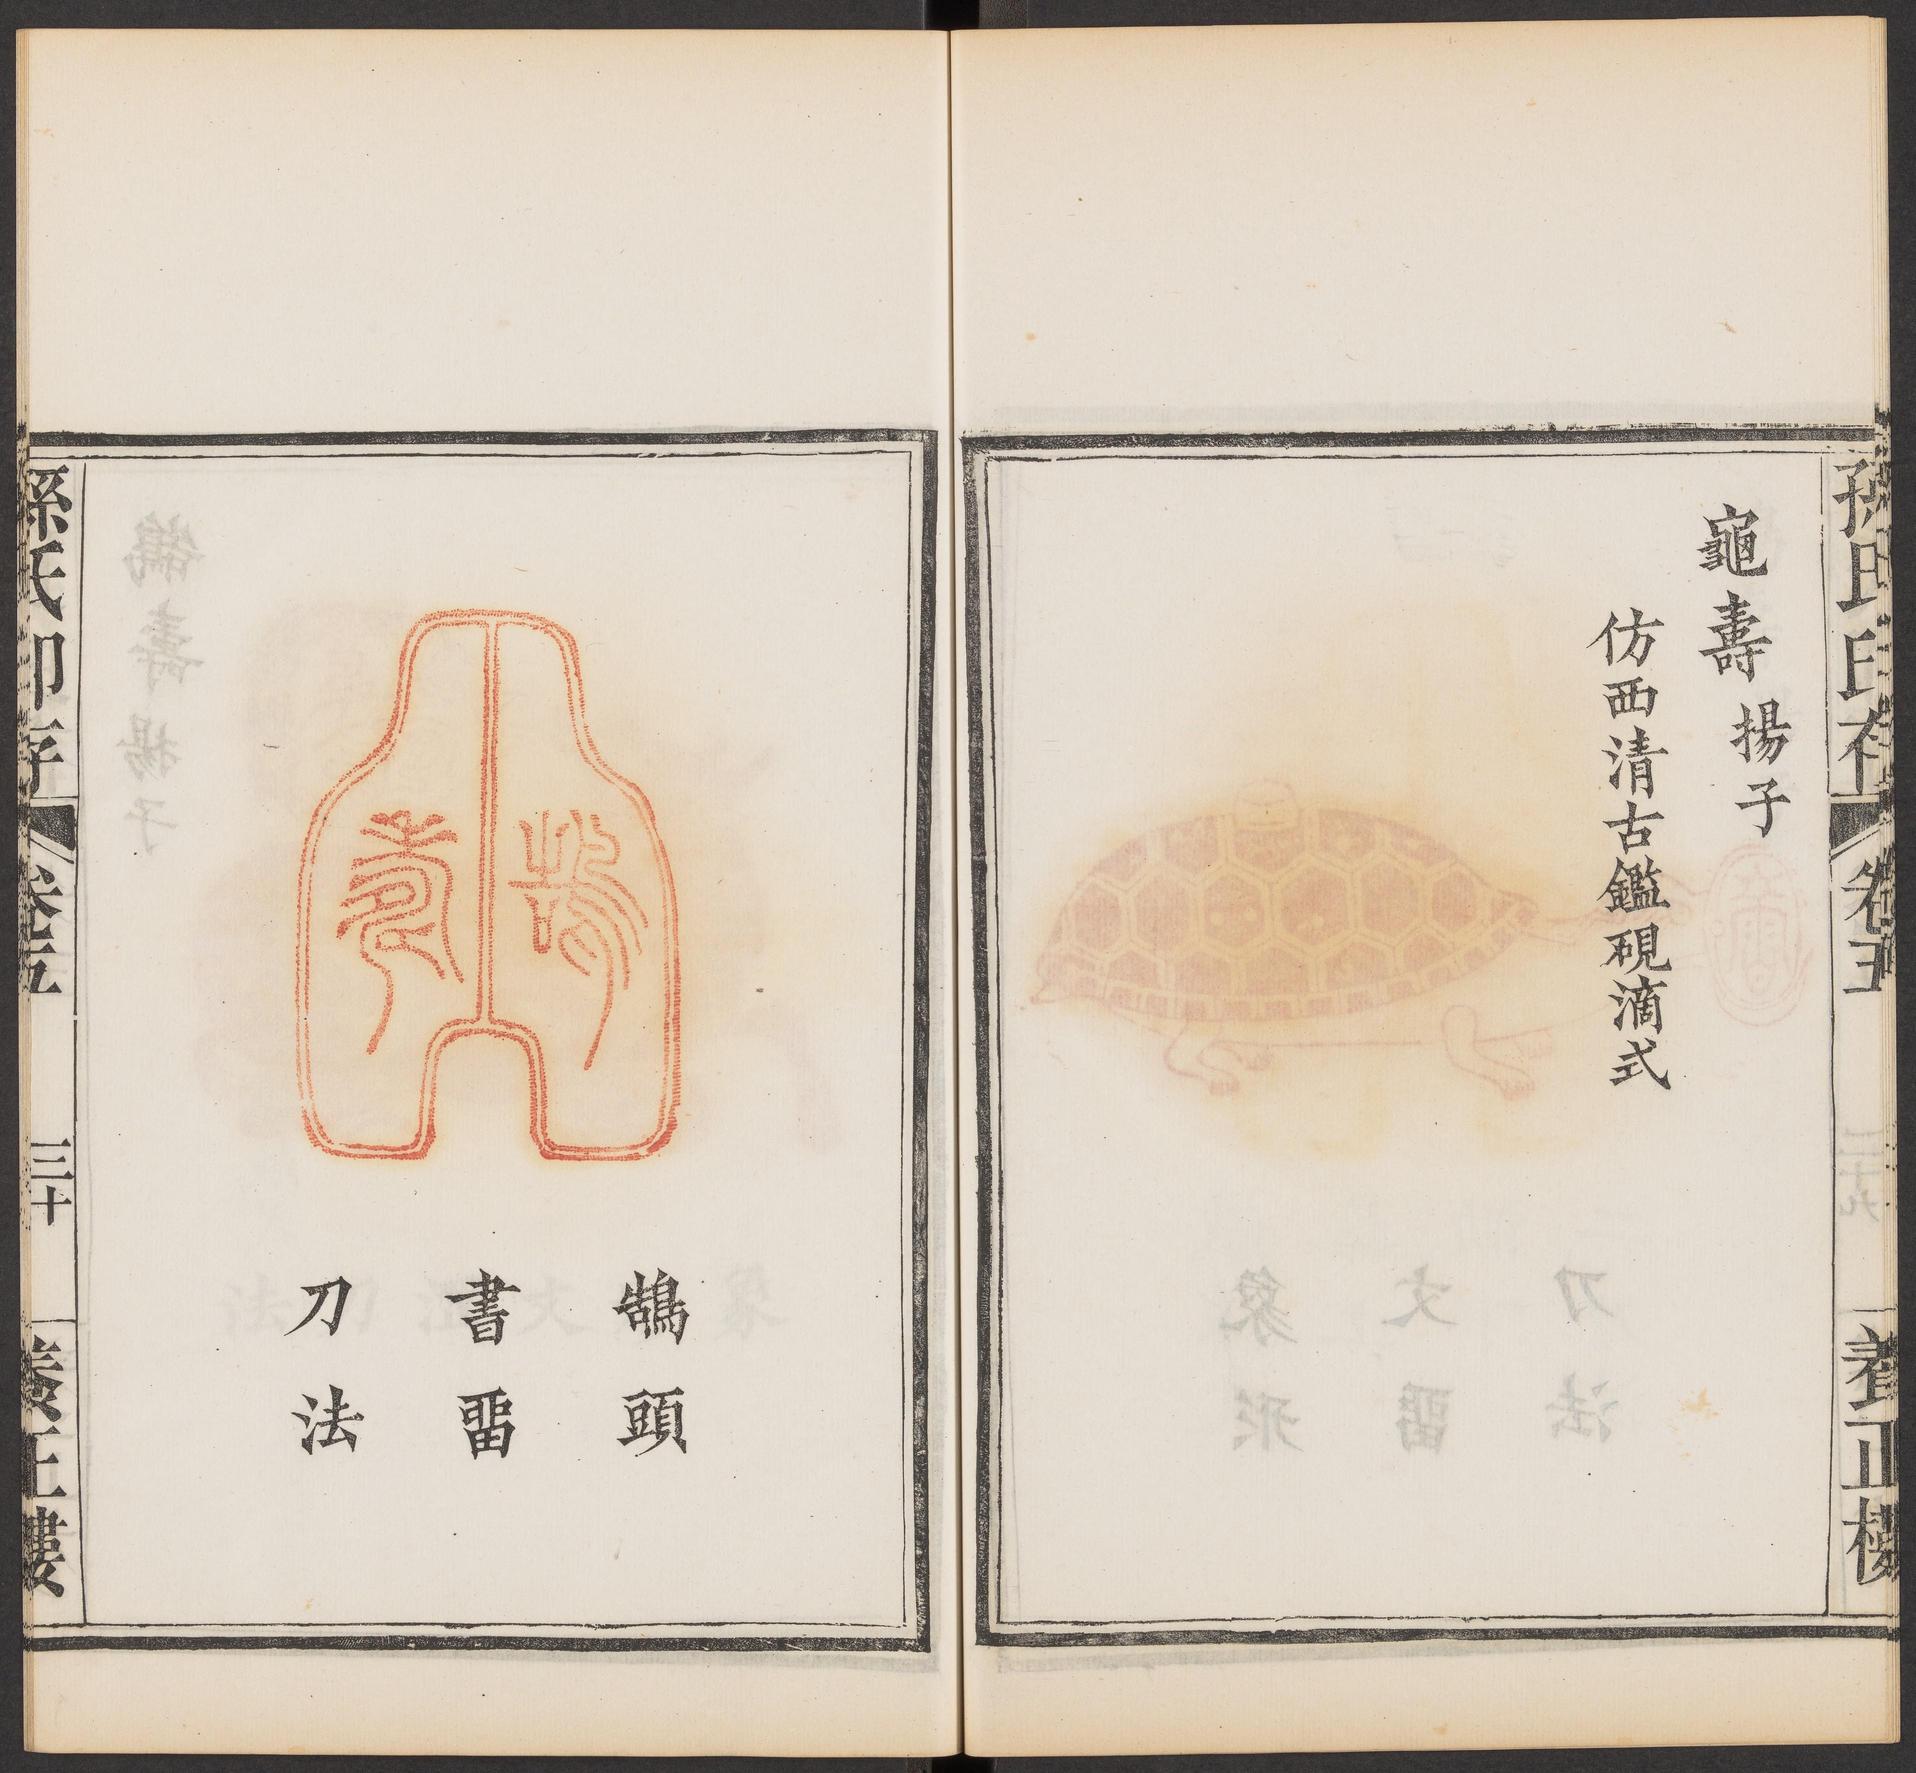 孫氏印存 卷五 養正樓
龜壽 揚子
仿西清古鑑硯滴式
鵠頭
書畱
刀法
孫氏印存 卷五 三十 養正樓